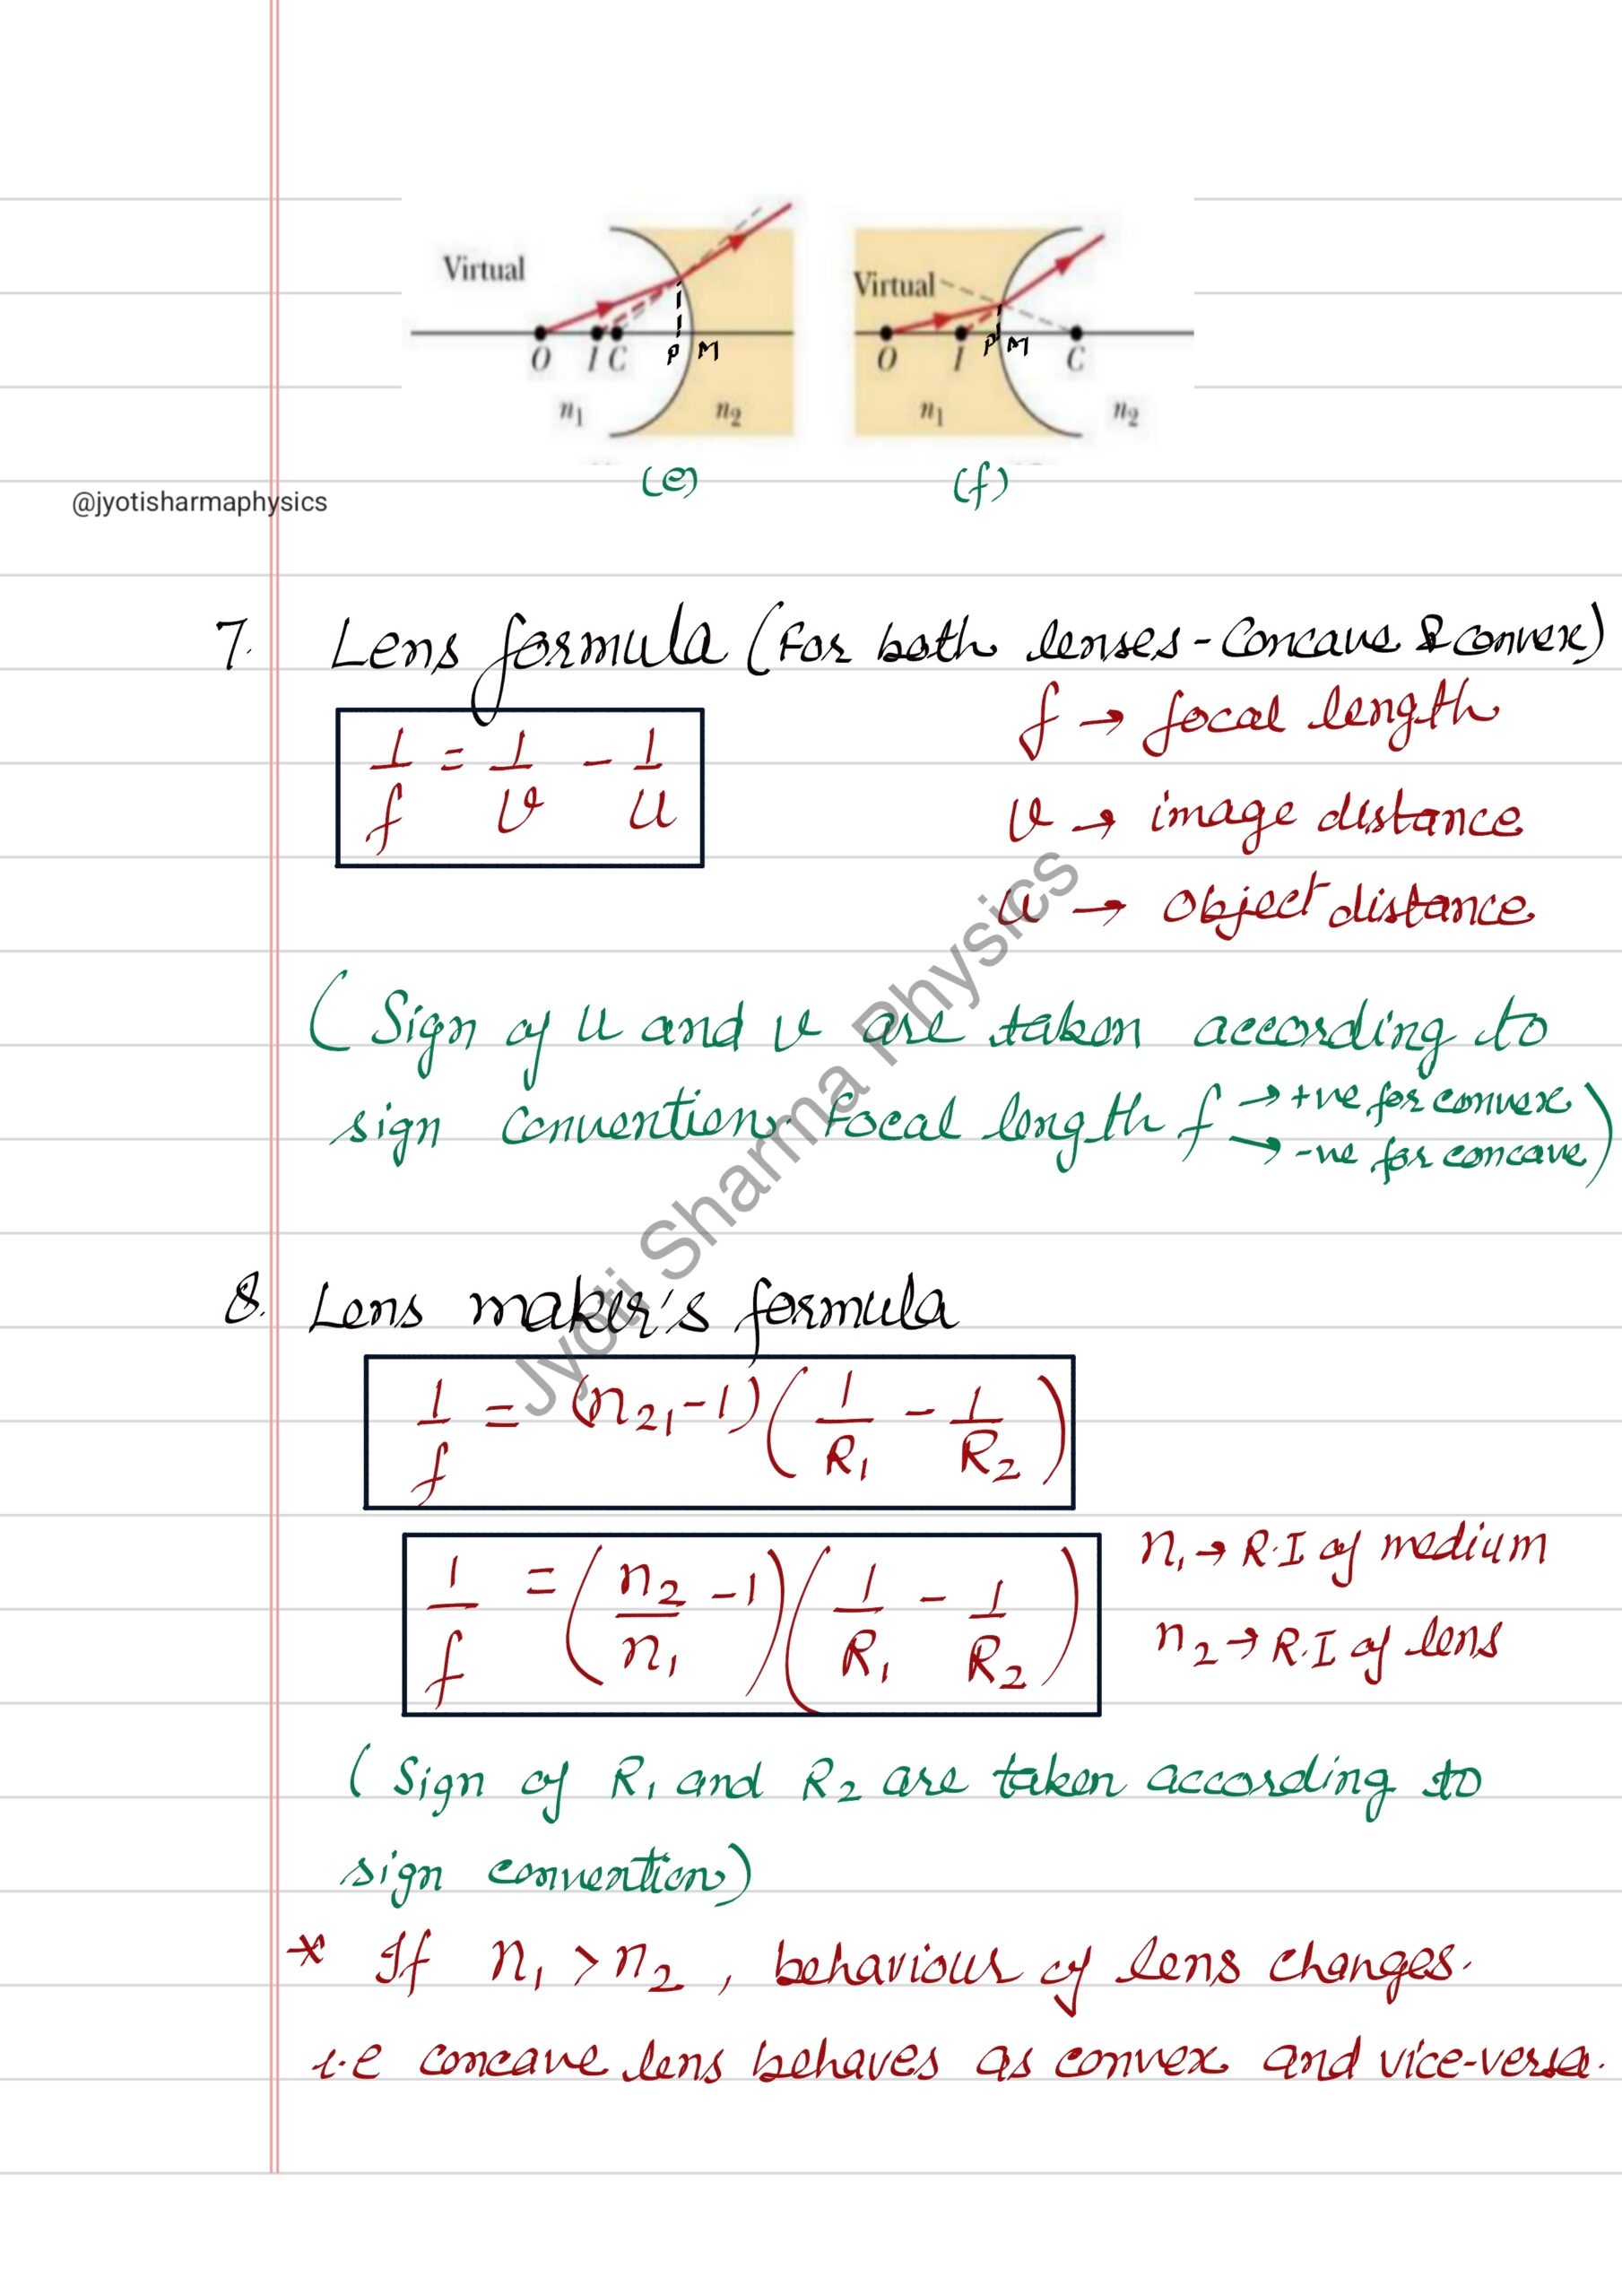 Virtual
O I C P M
n₁ n₂
(e)
Virtual
O I P M C
n₁ n₂
(f)
@jyotisharmaphysics
7. Lens formula (For both lenses - Concave & convex)
1/f = 1/v - 1/u
f → focal length
v → image distance
u → object distance
(Sign of u and v are taken according to
sign convention. Focal length f → +ve for convex
→ -ve for concave)
8. Lens maker's formula
1/f = (n₂₁-1)(1/R₁ - 1/R₂)
1/f = (n₂/n₁ - 1)(1/R₁ - 1/R₂)
n₁ → R.I of medium
n₂ → R.I of lens
(Sign of R₁ and R₂ are taken according to
sign convention)
* If n₁ > n₂, behaviour of lens changes.
i.e concave lens behaves as convex and vice-versa.
Jyoti Sharma Physics